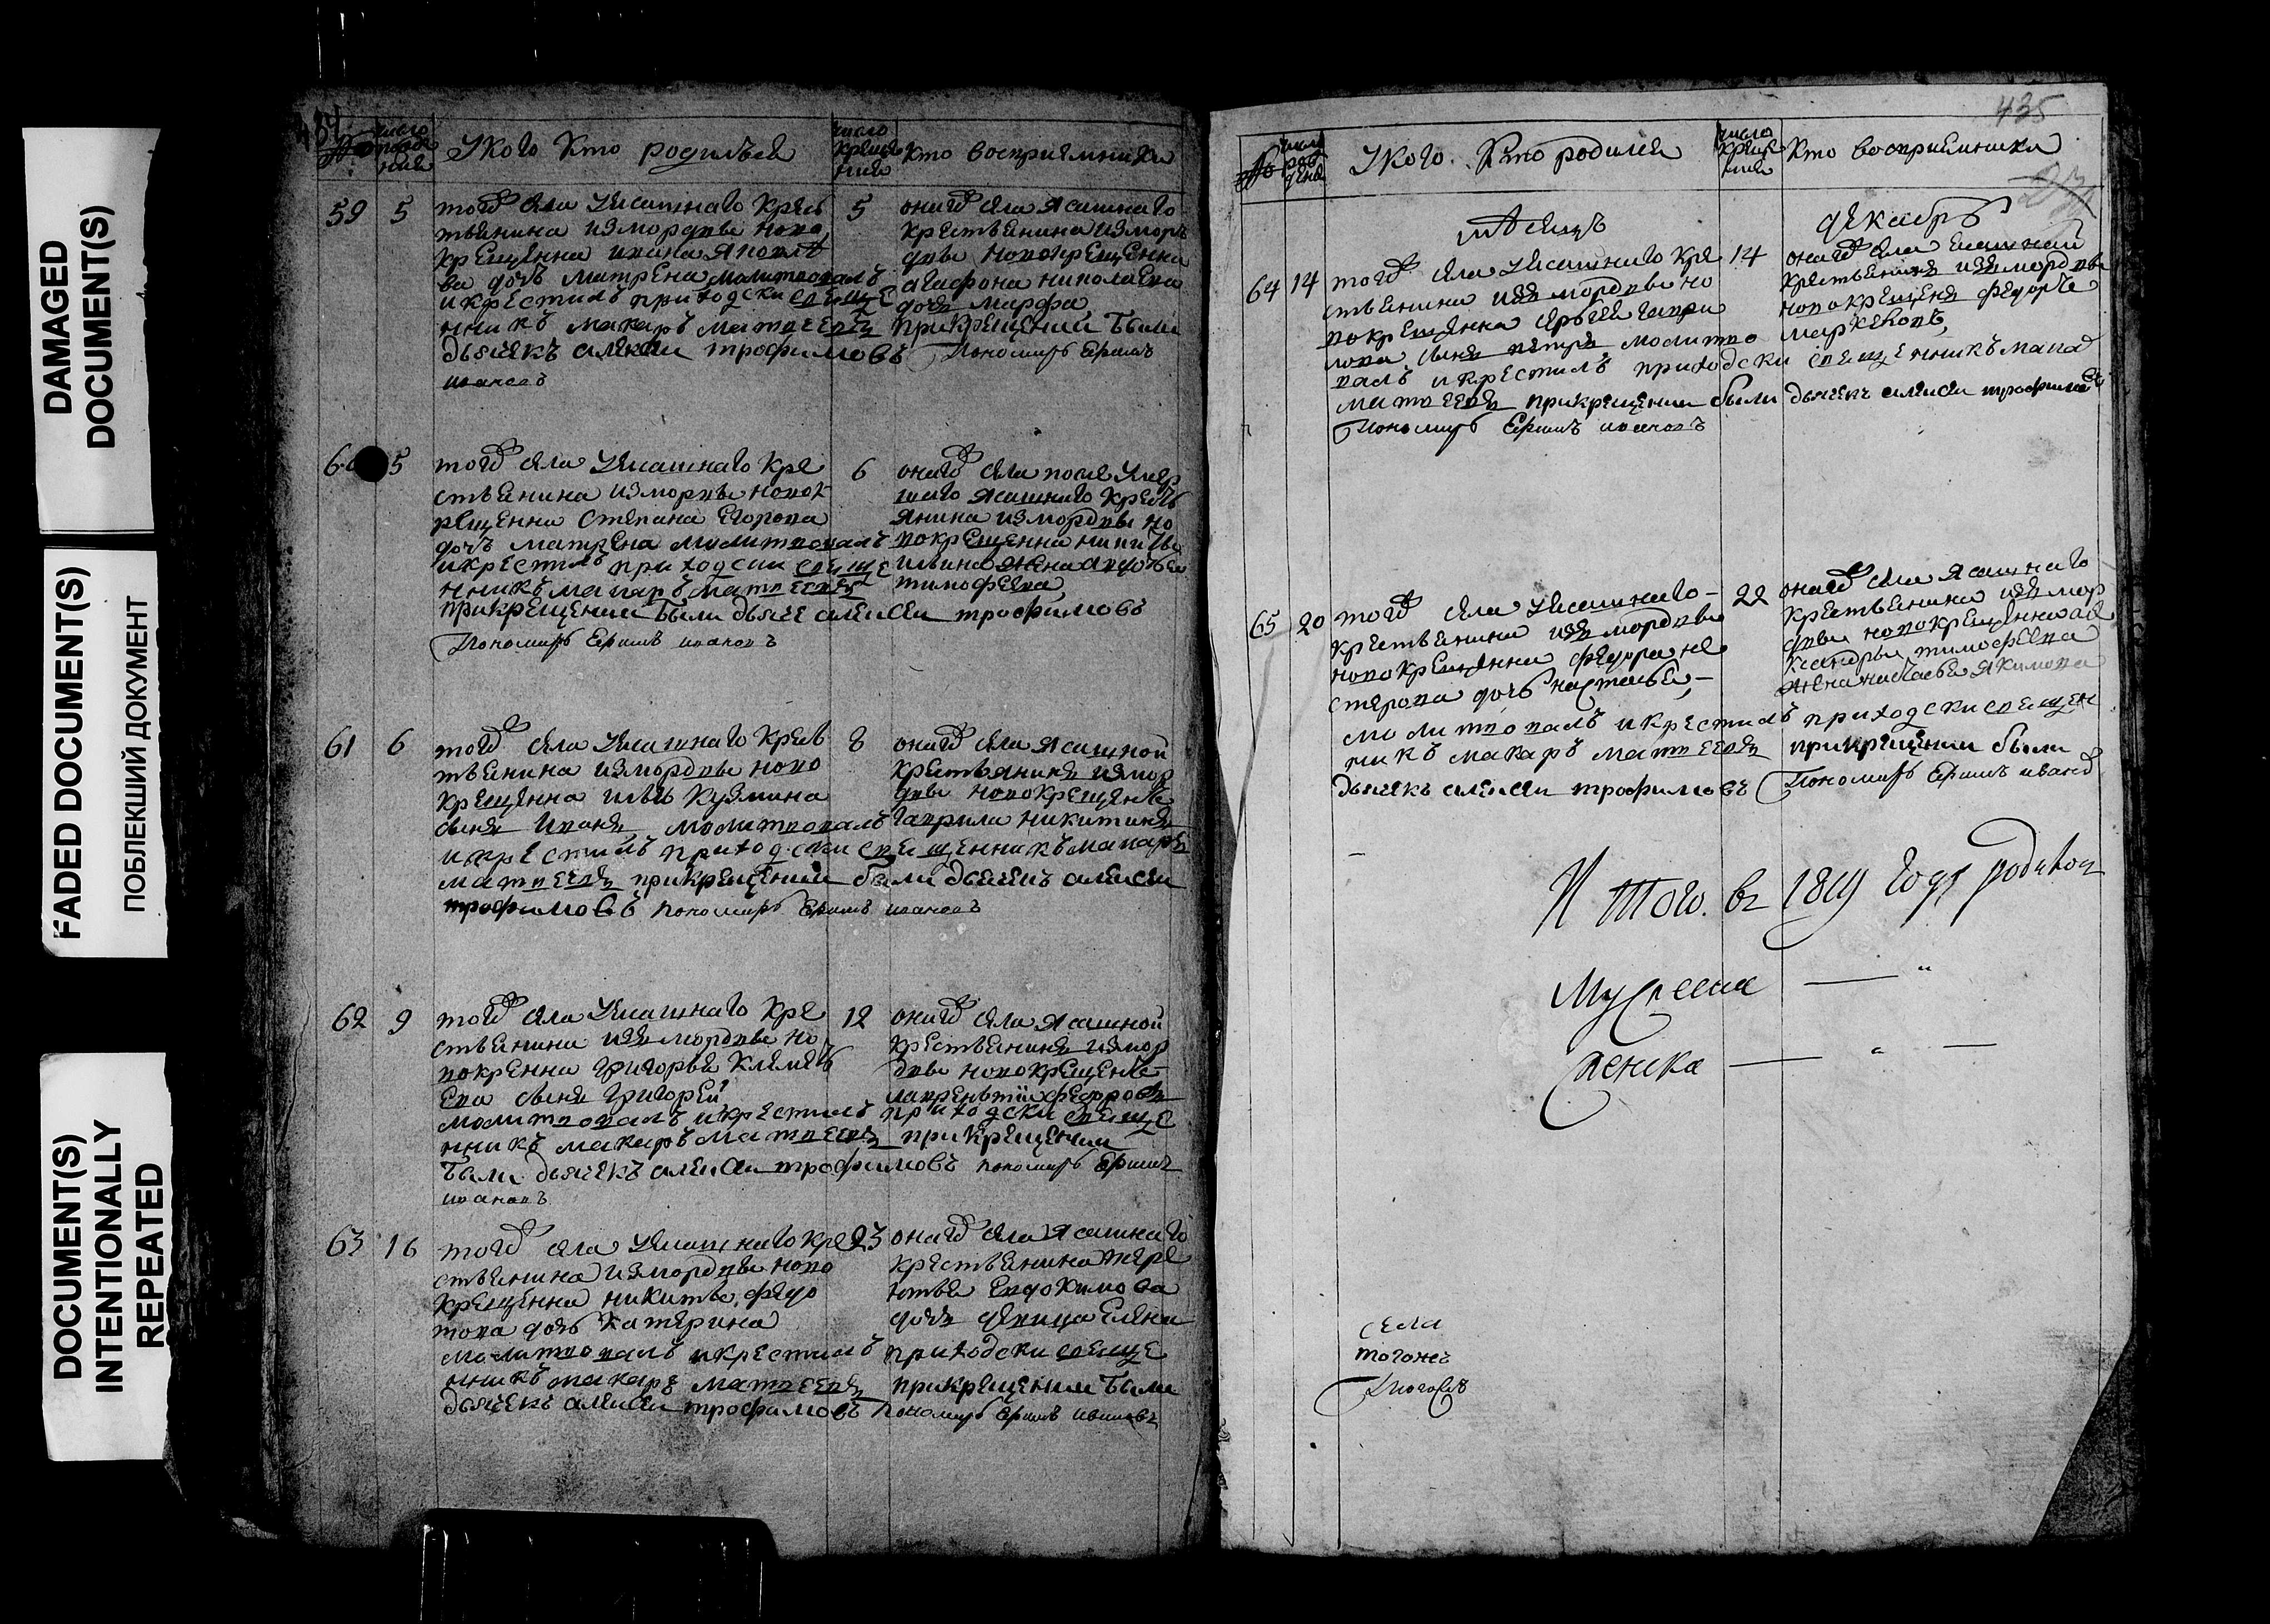 DAMAGED
DOCUMENT(S)
FADED DOCUMENT(S)
ПОБЛЕКШИЙ ДОКУМЕНТ
DOCUMENT(S)
INTENTIONALLY
REPEATED
число рожде ния
Укого Кто родилъся
число креще ния
кто восприемники
59 5
тогѡ села Уясашнаго крес
тьянина измордвы ново
крещенна ивана яковле
ва дочь матрена молитвовалъ
икрестилъ приходски свяще
нникъ макаръ матвеевъ
дьячекъ алексеи трофимовъ
Пономарь
ивановъ
5
онагѡ села ясашнаго
крестьянина измор
двы новокрещенна
агафона николаева
дочь марфа
прикрещении были
60 5
тогѡ села Уясашнаго кре
стьянина измордвы новок
рещенна Степана Егорова
дочь матрена молитвовалъ
икрестилъ приходски свяще
нникъ макаръ матвеевъ
прикрещении были дьяче алексеи трофимовъ
Пономарь ивановъ
6
онагѡ села после умер
шаго ясашнаго кресть
янина измордвы но
вокрещенна никиты
ильина жена авдотья
тимофеева
61 6
тогѡ села Уясашнаго крес
тьянина измордвы ново
крещенна ильи Кузмина
сынъ Иванъ молитвовалъ
икрестилъ приходски священникъ макаръ
матвеевъ прикрещении были дьячекъ алексеи
трофимовъ пономарь ивановъ
8
онагѡ села ясашной
крестьянинъ измор
двы новокрещенъ
гаврила никитинъ
62 9
тогѡ села Уясашнаго кре
стьянина изъ мордвы но
вокренна григорья клементь
ева сынъ григорей
молитвовалъ икрестилъ приходски свяще
нникъ макаръ матвеевъ прикрещении
были дьячекъ алексеи трофимовъ пономарь
ивановъ
12
онагѡ села ясашной
крестьянинъ измор
двы новокрещенъ
лаврентий федоровъ
63 16
тогѡ села Уясашнаго кре
стьянина измордвы ново
крещенна никиты федо
това дочь катерина
молитвовалъ икрестилъ приходски свяще
нникъ макаръ матвеевъ прикрещении были
дьячекъ алексеи трофимовъ пономарь ивановъ
23
онагѡ села ясашнаго
крестьянина тере
нтья евдокимова
дочь девица елена
435
Укого Кто родился
число креще ния
Кто восприемники
мѣсяцъ декабрь
64 14
тогѡ села Уясашнаго кре
стьянина изъ мордвы но
вокрещенна сергея гаври
лова сынъ петръ молитво
валъ икрестилъ приходски священникъ макар
матвеевъ прикрещении были дьячекъ алексеи трофимов
Пономарь ивановъ
14
онагѡ села ясашной
крестьянинъ изъ мордвы
новокрещенъ федоръ
маркеловъ
65 20
тогѡ села Уясашнаго
крестьянина изъ мордвы
новокрещенна федора не
стерова дочь настасья
молитвовалъ икрестилъ приходски священ
никъ макаръ матвеевъ прикрещении были
дьячекъ алексеи трофимовъ Пономарь иванов
22
онагѡ села ясашнаго
крестьянина изъ мор
двы новокрещенна але
ксандры тимофеева
жена настасья якимова
И того. въ 1819 году родивш
Мужеска
женска
села
тогожъ